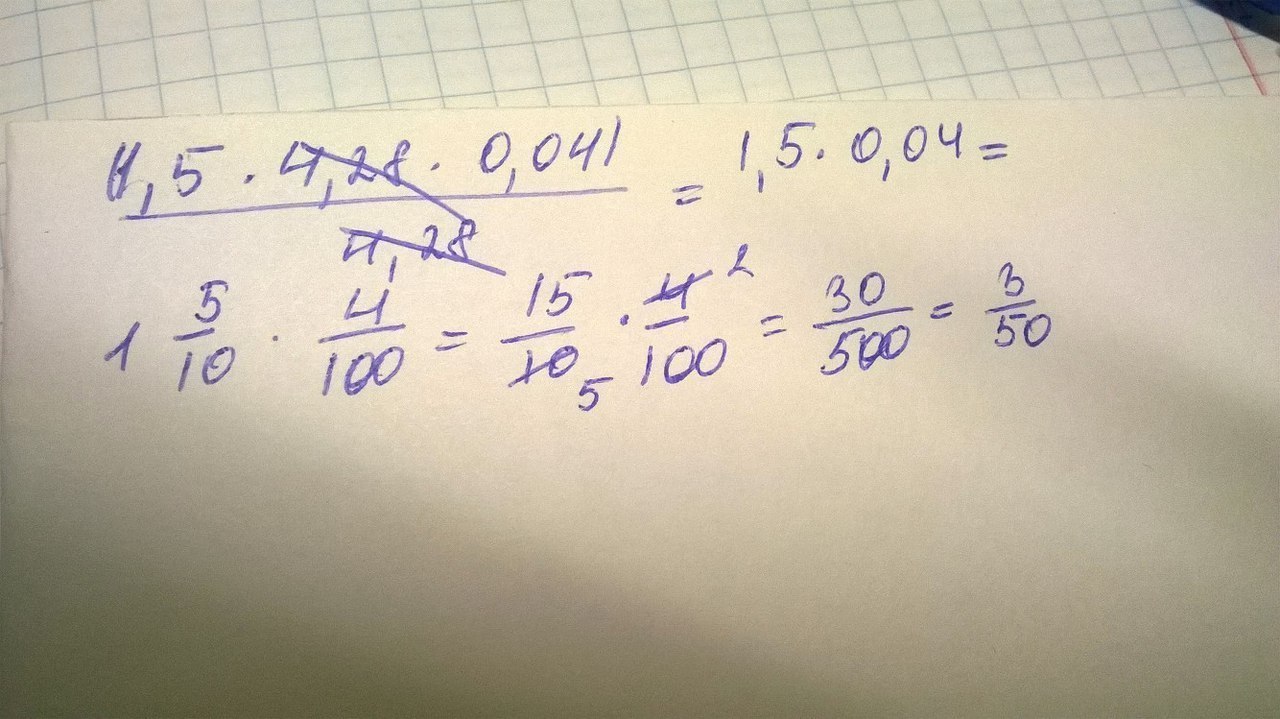 (1,5 · 4,28 · 0,04) / 4,28 = 1,5 · 0,04 =
1 5/10 · 4/100 = 15/10 5 · 4/100 2 = 30/500 = 3/50